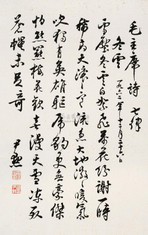 毛主席詩 七律
冬雲 一九六二年十二月二十六日
雪壓冬雲白絮飛萬花紛謝一時
稀高天滾滾寒流急大地微微暖氣
吹獨有英雄驅虎豹更無豪傑
怕熊羆梅花歡喜漫天雪凍死
蒼蠅未足奇
尹默